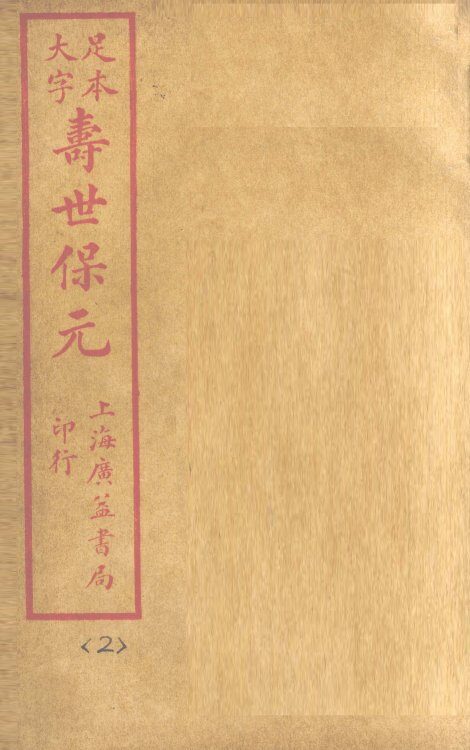 足本
大字
壽世保元
上海廣益書局
印行
<2>